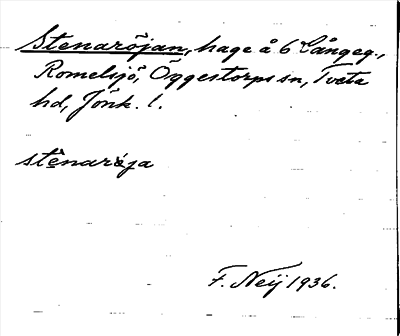 Stenaröjan, hage å 6 Långeg.,
Romelsjö, Öggestorps sn, Tveta
hd, Jönk. l.
stẹ̀naröja
F. Neij 1936.